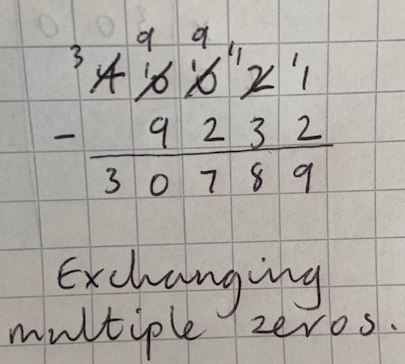 9 9
3 4 10 10 11 2 11
- 9 2 3 2
3 0 7 8 9
Exchanging
multiple zeros.